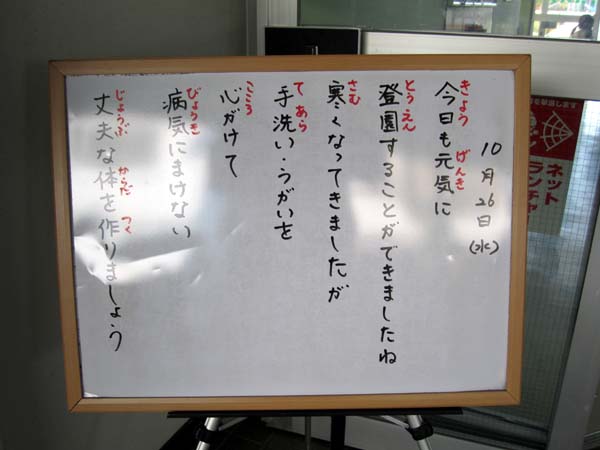 10月26日(水)
今日も元気に
きょう げんき
登園することができましたね
とうえん
寒くなってきましたが
さむ
手洗い・うがいを
て あら
心がけて
こころ
病気にまけない
びょうき
丈夫な体を作りましょう
じょうぶ からだ つく
ネット
ランチャ